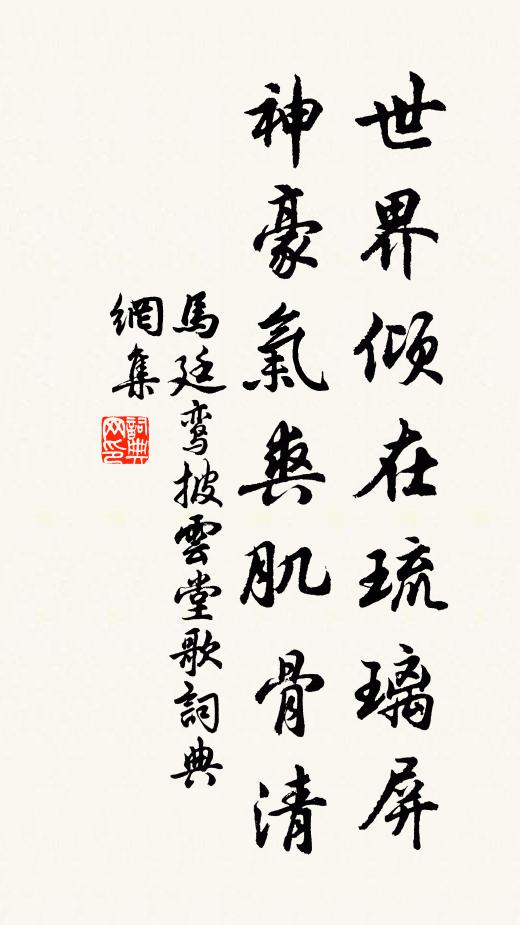 世界傾在琉璃屏
神豪氣爽肌骨清
馬廷鸞披雲堂歌詞典
網集
詞典
网印